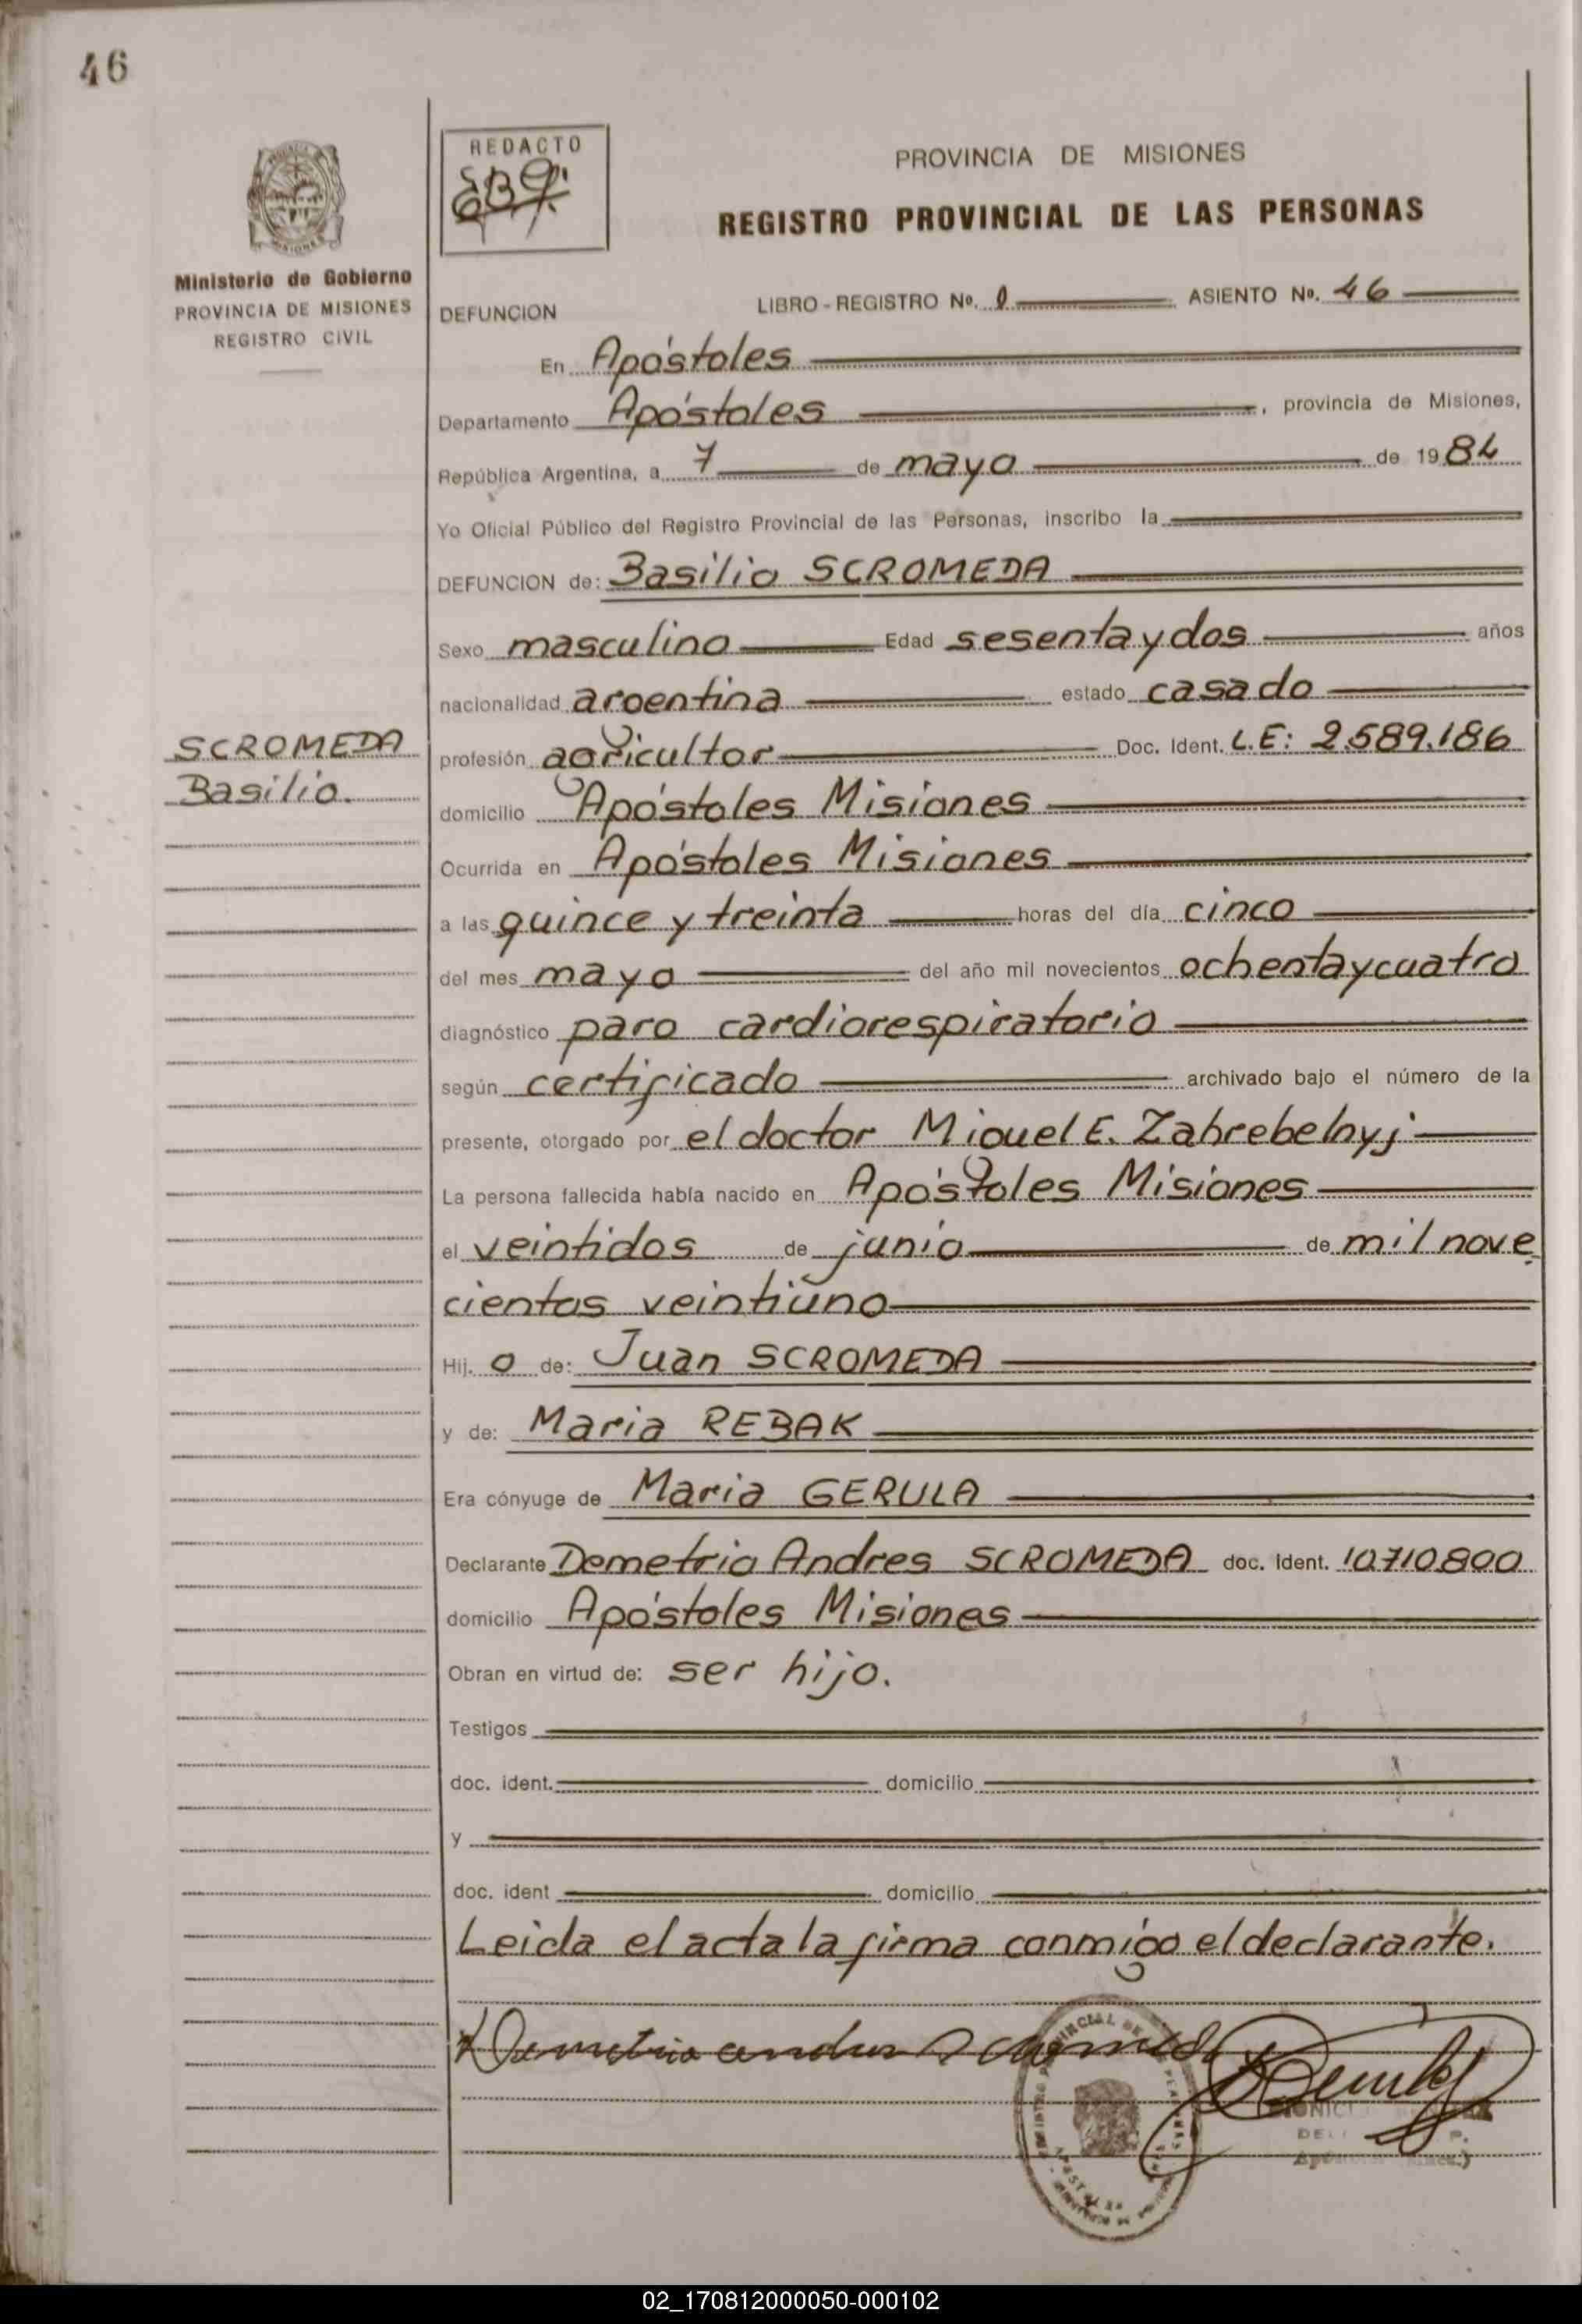 46
REDACTO
PROVINCIA DE MISIONES
REGISTRO PROVINCIAL DE LAS PERSONAS
Ministerio de Gobierno
PROVINCIA DE MISIONES
REGISTRO CIVIL
DEFUNCION LIBRO - REGISTRO Nº. ASIENTO Nº. 46
En Apóstoles
Departamento Apóstoles, provincia de Misiones,
República Argentina, a 7 de mayo de 1984
Yo Oficial Público del Registro Provincial de las Personas, inscribo la
DEFUNCION de: Basilio SCROMEDA
Sexo masculino Edad sesenta y dos años
nacionalidad argentina estado casado
SCROMEDA
Basilio.
profesión agricultor Doc. Ident. L.E: 2.589.186
domicilio Apóstoles Misiones
Ocurrida en Apóstoles Misiones
a las quince y treinta horas del día cinco
del mes mayo del año mil novecientos ochenta y cuatro
diagnóstico paro cardiorespiratorio
según certificado archivado bajo el número de la
presente, otorgado por el doctor Miguel E. Zahrebelnyj
La persona fallecida había nacido en Apóstoles Misiones
el veintidos de junio de mil nove
cientos veintiuno
Hij. o de: Juan SCROMEDA
y de: Maria REBAK
Era cónyuge de Maria GERULA
Declarante Demetrio Andres SCROMEDA doc. ident. 10.710.800
domicilio Apóstoles Misiones
Obran en virtud de: ser hijo.
Testigos
doc. ident. domicilio
y
doc. ident domicilio
Leida el acta la firma conmigo el declarante.
02_170812000050-000102